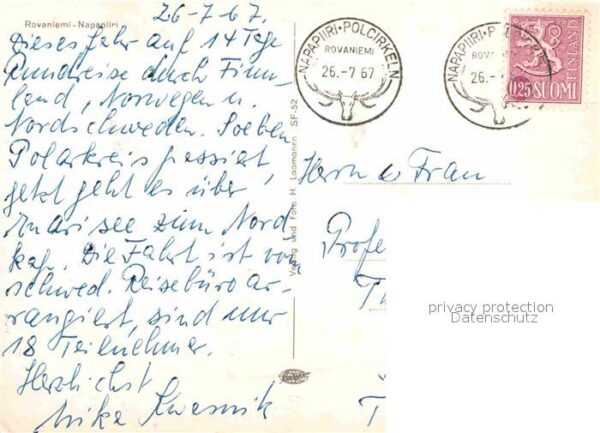 Rovaniemi - Napapiiri
26-7-67.
Dieses Jahr auf 14 Tage
Rundreise durch Finn-
land, Norwegen u.
Nordschweden. Soeben
Polarkreis passiert,
jetzt geht es über
Inarisee zum Nord
kap. Die Fahrt ist vom
schwed. Reisebüro ar-
rangiert, sind nur
18 Teilnehmer.
Herzlichst
Verlag und Foto H. Laamanen SF-52
NAPAPIIRI · POLCIRKELN
ROVANIEMI
26.-7 67
NAPAPIIRI
26.-
0,25 SUOMI
FINLAND
Herrn u Frau
Profe
privacy protection
Datenschutz